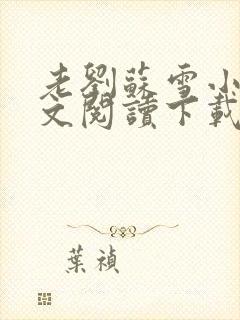 老劉蘇雪小
文閱讀下載
葉禎